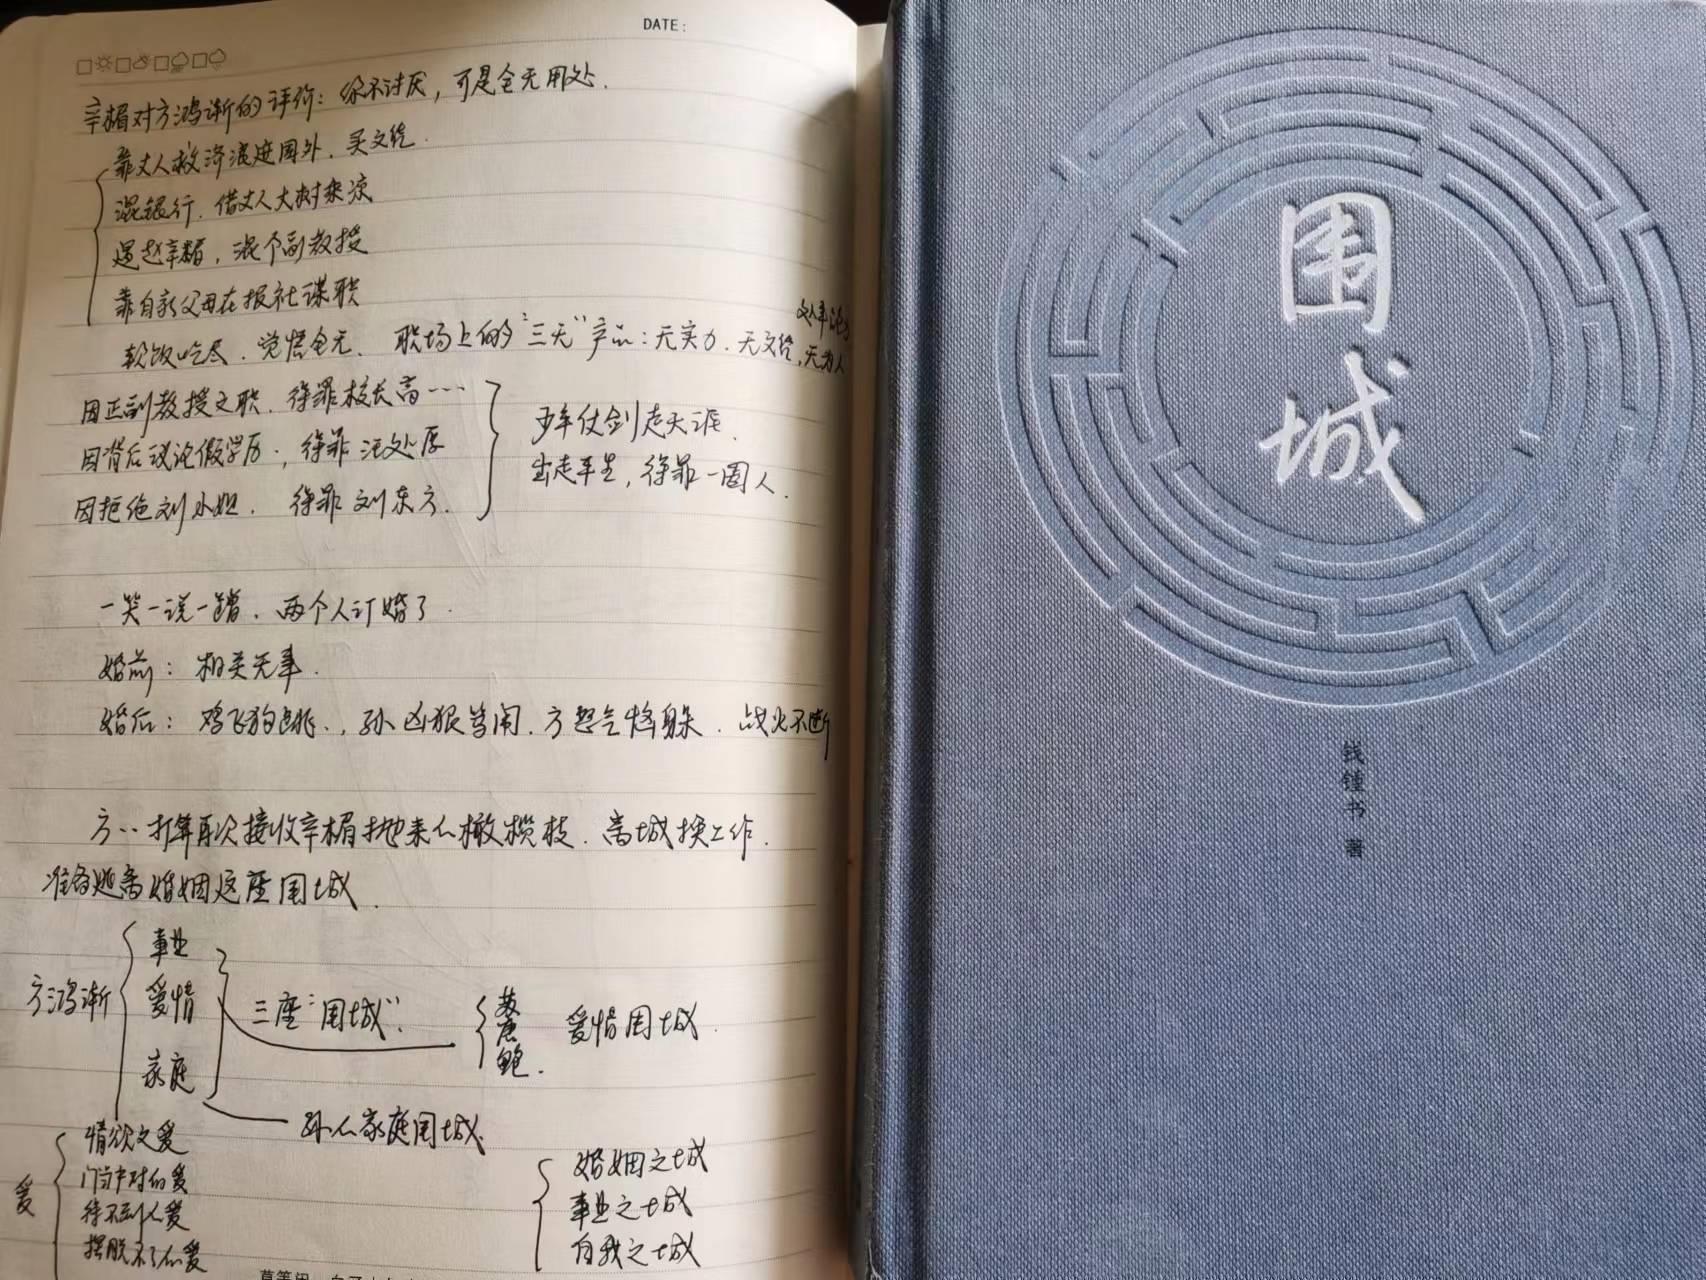 DATE:
辛楣对方鸿渐的评价：你不讨厌，可是全无用处.
靠丈人救济混进国外，买文凭.
混银行.借丈人大树乘凉
遇赵辛楣，混个副教授
靠自亲父母在报社谋职
软饭吃尽.觉悟全无. 职场上的“三无”产品：无实力.无文凭,无为人
因正副教授之职.得罪校长高……
因背后议论假学历.,得罪汪处厚
因拒绝刘小姐. 得罪刘东方.
少年仗剑走天涯.
出走半生,得罪一圈人.
一笑一说一蹭.两个人订婚了.
婚前：相关无事.
婚后：鸡飞狗跳.,孙凶狠苦闹.方忍气怄躲.战火不断
方..打算再次接收辛楣抛来的橄榄枝.离城换工作.
准备逃离婚姻这座围城.
方鸿渐
事业
爱情
家庭
三座“围城”.
苏
唐
鲍.
爱情围城.
孙的家庭围城.
爱
情欲之爱
门当户对的爱
得不到的爱
摆脱不了的爱
婚姻之城
事业之城
自我之城
围城
钱锺书 著